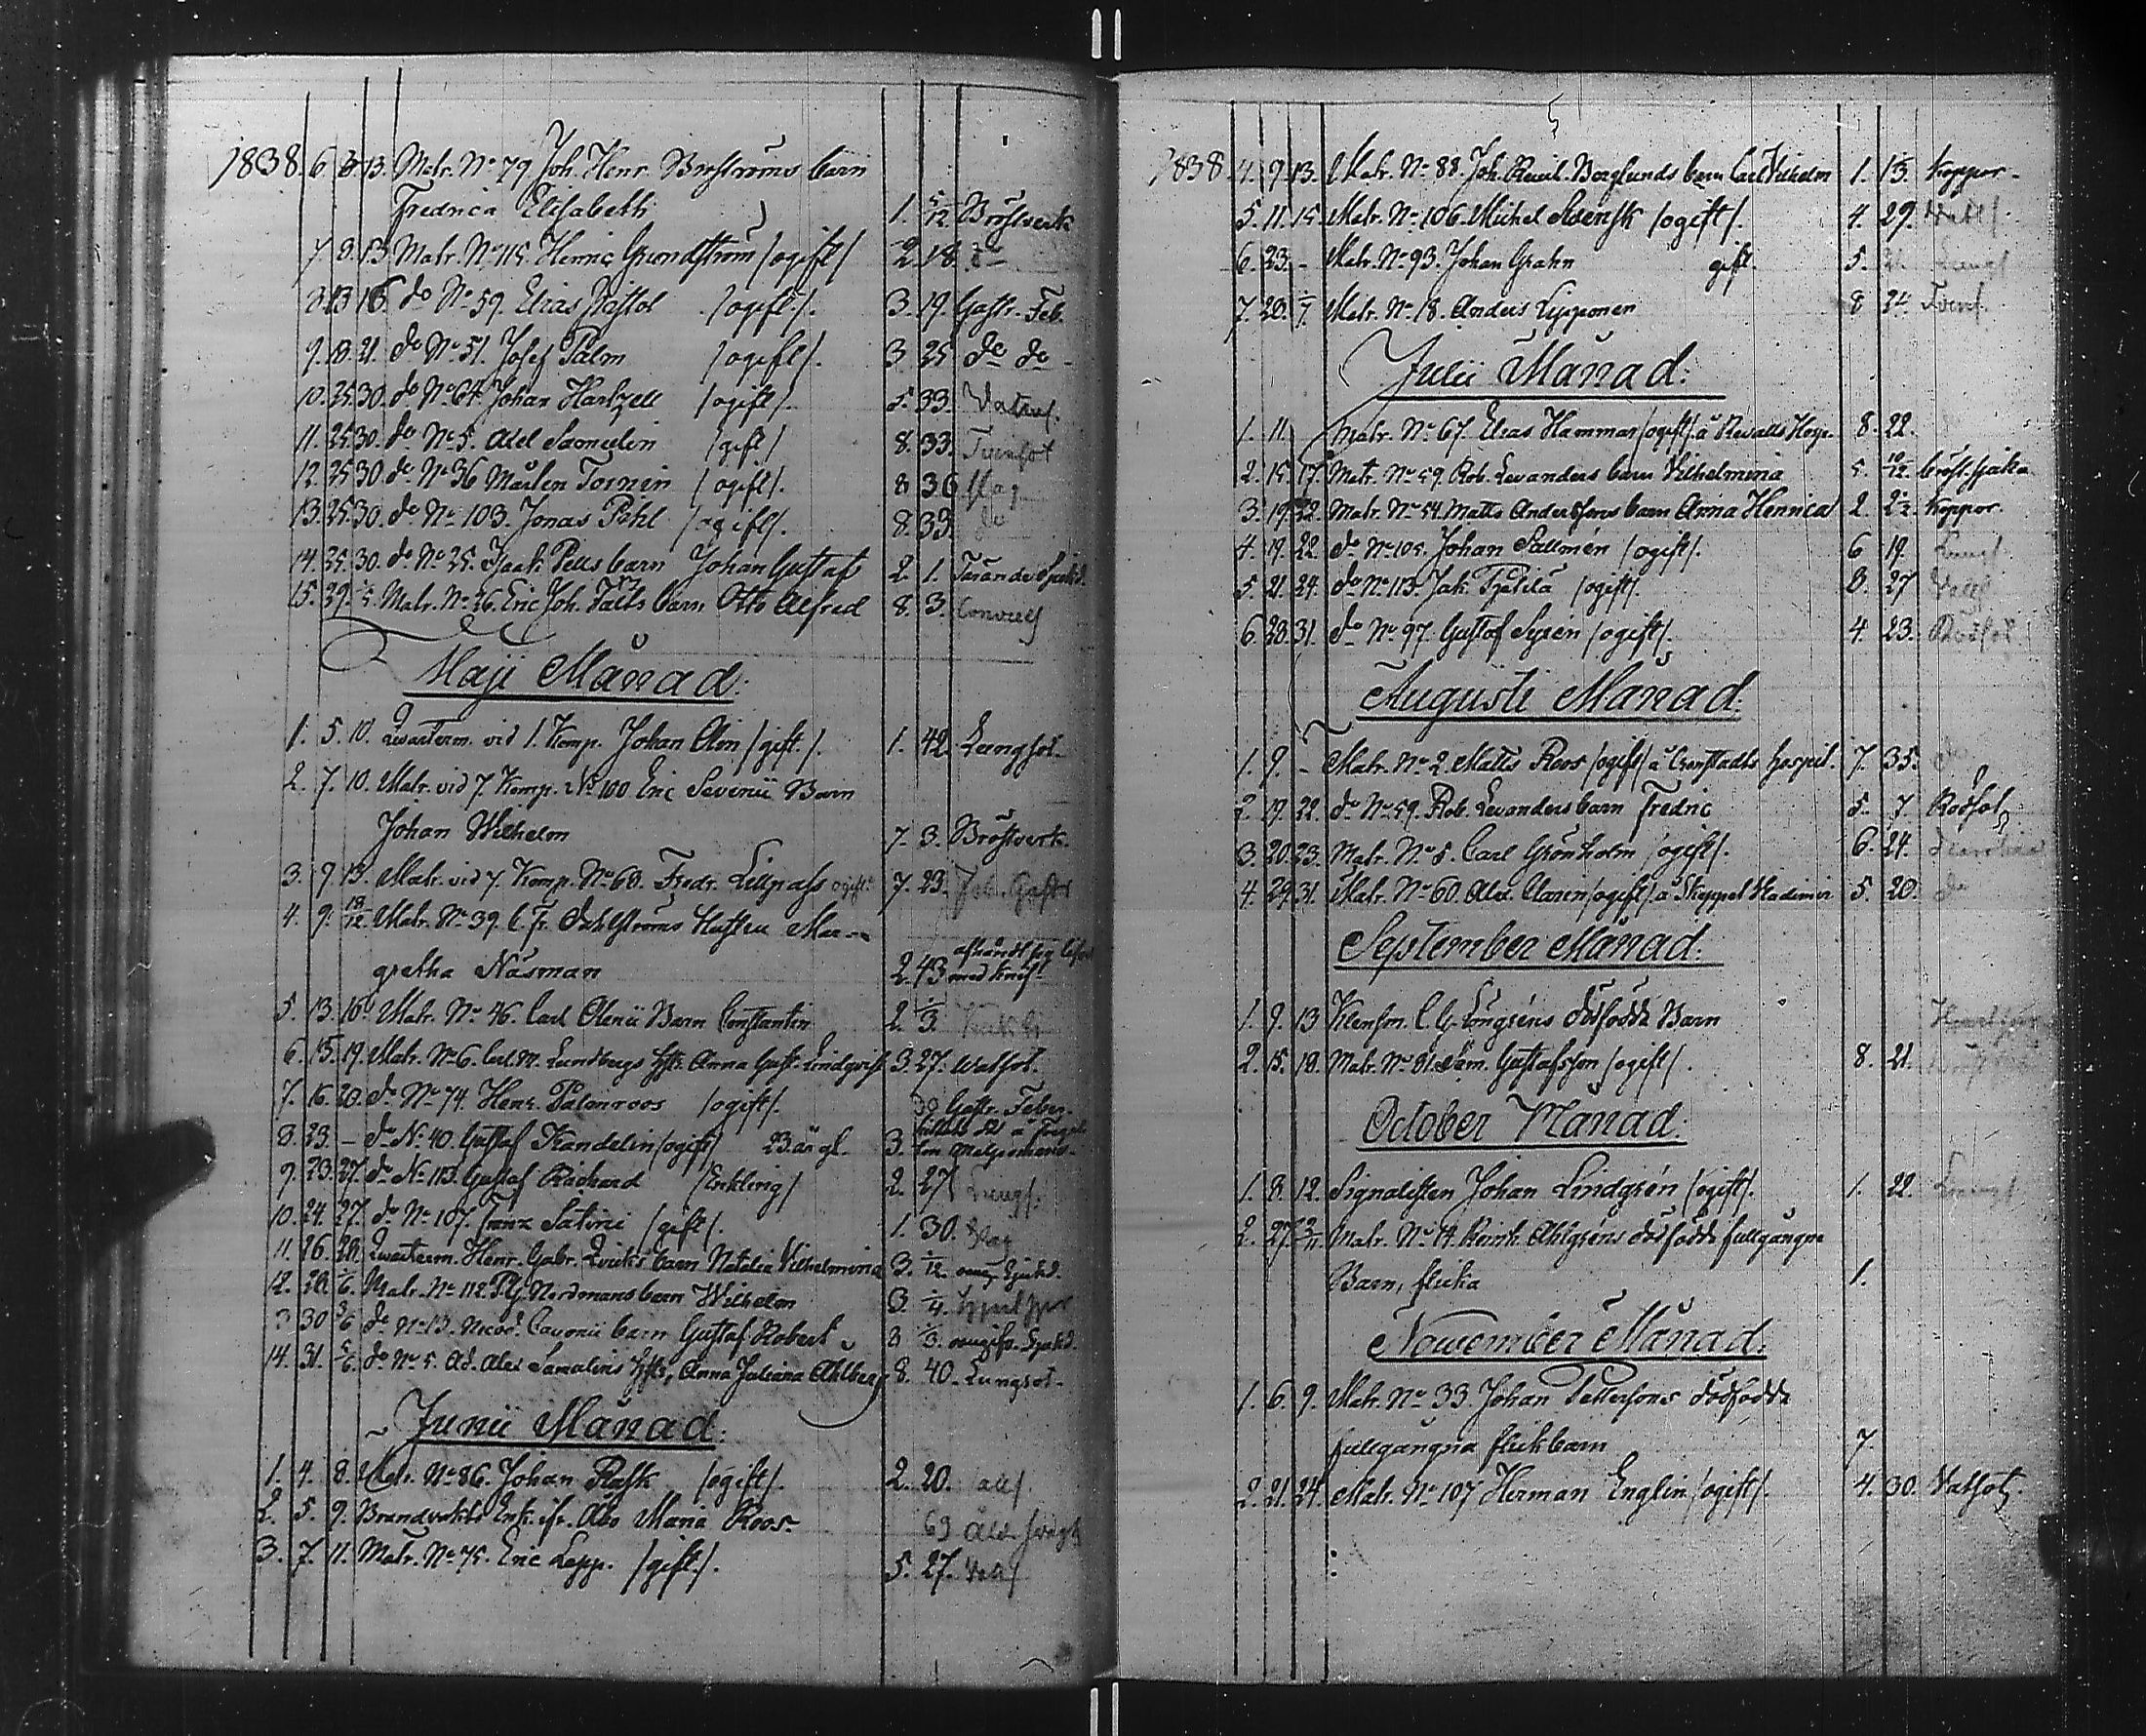 1838. 6. 8. 13. Matr. No 79. Joh. Henr. Broströms barn
Fredrica Elisabeth 1. 5/12 Bröstverk
7. 8. 13. Matr. No 115. Henric Grundström /ogift/ 2. 18. do
8. 13. 16. do No 59. Elias Pistol /ogift/. 3. 19. Gastr. Feb.
9. 18. 21. do No 51. Josef Palm /ogift/. 3. 25 do do
10. 25. 30. do No 64. Johan Hartzell /ogift/. 5. 33.
11. 25. 30. do No 5. Axel Samelin /gift/ 8. 33. Tvinsot
12. 25 30. do No 36 Mårten Tornin /ogift/. 8 36 Slag
13. 25. 30. do No 103. Jonas Pihl /ogift/. 8. 33. do
14. 25. 30. do No 25. Isaak Pells barn Johan Gustaf 2. 1.
15. 29. 1/5. Matr. No 26. Eric Joh. Fälts barn Otto Alfred 8. 3. Convuls
Maji Månad:
1. 5. 10. Quarterm. vid 1. Komp. Johan Alm /gift/. 1. 42. Lungsot
2. 7. 10. Matr. vid 7. Komp. No 100 Eric Savenii Barn
Johan Wilhelm 7. 3. Bröstverk.
3. 9. 13. Matr. vid 7. Komp. No 60. Fredr. Lillpass ogift. 7. 23. Feb. Gastr
4. 9. 13/12 Matr. No 39. C. Fr. Dahlströms Hustru Mar-
gretha Näsman 2. 43 med knif
5. 13. 16. Matr. No 46. Carl Alenii Barn Constantin 2. 1/3.
6. 15. 19. Matr. No 6. Carl M. Lundbergs hst. Anna Gust. Lindqvist 3. 27. Watsot.
7. 16. 20. do No 74. Henr. Palmroos /ogift/. 30 Gastr. Feber.
8. 23. – do No 40. Gustaf Kandelin /ogift/ 23. år gl. 3.
9. 23. 27. do No 113. Gustaf Richard /Enkling/ 2. 27 Lungs.
10. 24. 27. do No 107. Franz Satini /gift/. 1. 30. Slag
11. 26. 28. Quarterm. Henr. Gabr. Qvicks barn Natalia Vilhelmina 3. 1/12.
12. 28. 1/6. Matr. No 112. Nordmans barn Wilhelm 3. 1/4.
30 3/6 do No 13. Cavonii barn Gustaf Robert 8 1/3.
14. 31. 5/6. do No 5. Ad. Alex Samelins hst. Anna Juliana Ahlberg 8. 40. Lungsot
Junii Månad:
1. 4. 8. Matr. No 86. Johan Rask /ogift/. 2. 20.
2. 5. 9. Brandvakts Enk. ifr. Åbo Maria Roos. 69
3. 7. 11. Matr. No 75. Eric Lepp. /gift/. 5. 27.
1838. 4. 9. 13. Matr. No 88. Joh. Reinh. Berglunds barn Carl Vilhelm 1. Koppor
5. 11. 15. Matr. No 106. Michel Svensk /ogift/. 4. 29.
6. 23. – Matr. No 93. Johan Grahn gift. 5. Lungs
7. 28. 1/7. Matr. No 18. Anders Lipponen 8 24
Julii Månad:
1. 11. Matr. No 67. Elias Hammar /ogift/ å Revalls Hosp. 8. 22.
2. 15. 17. Matr. No 59. Rob. Levanders barn Vilhelmina 5. 10/12
3. 19. 22. Matr. No 54. Matts Anderssons barn Anna Henrica 2. Koppor.
4. 19. 22. do No 105. Johan Sallmén /ogift/. 6 19. Lungs.
5. 21. 24. do No 113. Jak. /ogift/. 8. 27
6. 28. 31. do No 97. Gustaf Syrén /ogift/. 4. 23. Rödsot
Augusti Månad:
1. 9. – Matr. No 2. Matts Roos /ogift/ å Cronstadts hospit. 7. 35. do
2. 19. 22. do No 59. Rob. Levanders barn Fredric 5. 7. Rödsot
3. 20. 23. Matr. No 8. Carl Grönholm /ogift/. 6. 24.
4. 29. 31. Matr. No 60. Alex. Claren /ogift/ å Skeppet Vladimir 5. 20. do
September Månad:
1. 9. 13 C. G. Löngréns dödfödda Barn
2. 15. 18. Matr. No 81. Sam. Gustafsson /ogift/. 8. 21.
October Månad:
1. 8. 12. Signalisten Johan Lindgrén /ogift/. 1. 22. Lungs
2. 27. 2/11 Matr. No 14. Reinh. Ahlgréns dödfödda fullgångna
Barn, flicka 1.
November Månad:
1. 6. 9. Matr. No 33. Johan Pettersons dödfödda
fullgångna flickbarn 7.
2. 21. 24. Matr. No 107 Herman Englin /ogift/. 4. 30. Vatsot